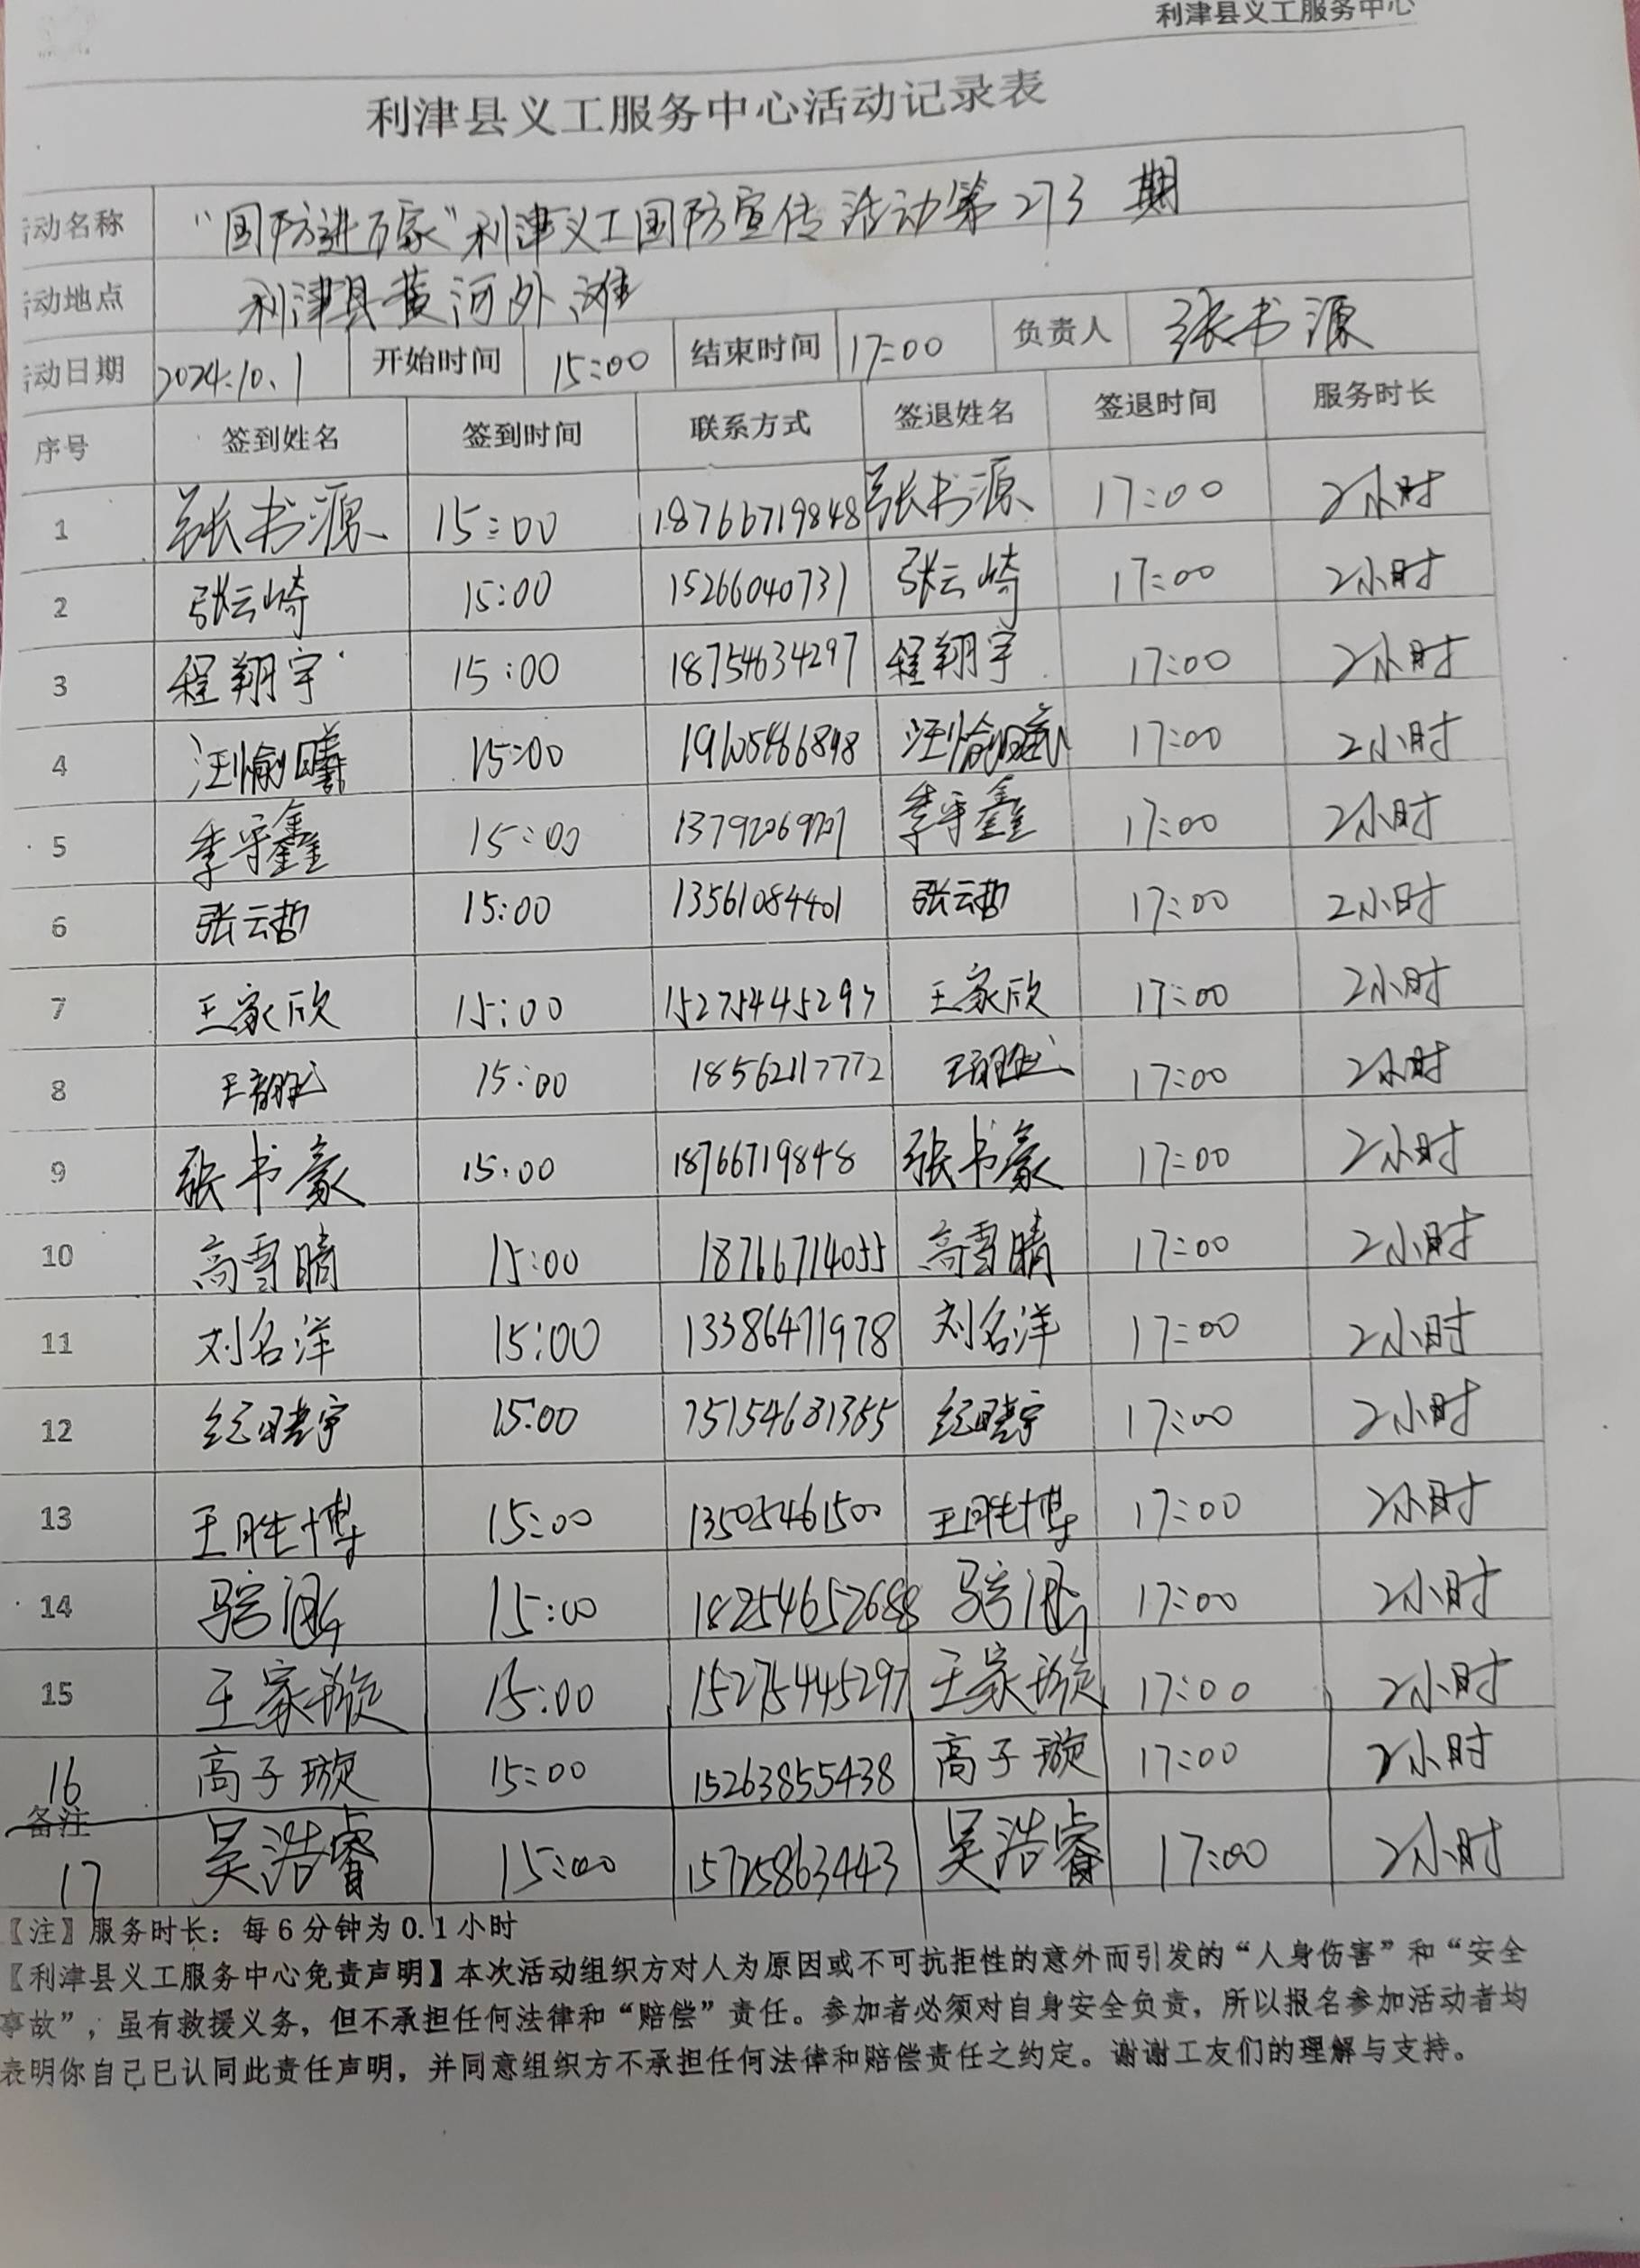 利津县义工服务中心
利津县义工服务中心活动记录表
活动名称 “国防进万家”利津义工国防宣传活动第273期
活动地点 利津县黄河外滩
活动日期 2024.10.1 开始时间 15:00 结束时间 17:00 负责人 张书源
序号 签到姓名 签到时间 联系方式 签退姓名 签退时间 服务时长
1 张书源 15:00 18766719848 张书源 17:00 2小时
2 张云崎 15:00 15266040731 张云崎 17:00 2小时
3 程翔宇 15:00 18754634297 程翔宇 17:00 2小时
4 汪愉曦 15:00 汪愉曦 17:00 2小时
5 李守鑫 15:00 李守鑫 17:00 2小时
6 张云哲 15:00 13561084401 张云哲 17:00 2小时
7 王家欣 15:00 15275445297 王家欣 17:00 2小时
8 15:00 18562117772 17:00 2小时
9 张书豪 15:00 18766719848 张书豪 17:00 2小时
10 高雪晴 15:00 18766714055 高雪晴 17:00 2小时
11 刘名洋 15:00 13386471978 刘名洋 17:00 2小时
12 纪晓宇 15:00 17:00 2小时
13 王胜博 15:00 13505461500 王胜博 17:00 2小时
14 15:00 18254652688 17:00 2小时
15 王家璇 15:00 15275445297 王家璇 17:00 2小时
16 高子璇 15:00 15263855438 高子璇 17:00 2小时
备注
17 吴浩睿 15:00 15725863443 吴浩睿 17:00 2小时
【注】服务时长：每6分钟为0.1小时
【利津县义工服务中心免责声明】本次活动组织方对人为原因或不可抗拒性的意外而引发的“人身伤害”和“安全
事故”，虽有救援义务，但不承担任何法律和“赔偿”责任。参加者必须对自身安全负责，所以报名参加活动者均
表明你自己已认同此责任声明，并同意组织方不承担任何法律和赔偿责任之约定。谢谢工友们的理解与支持。